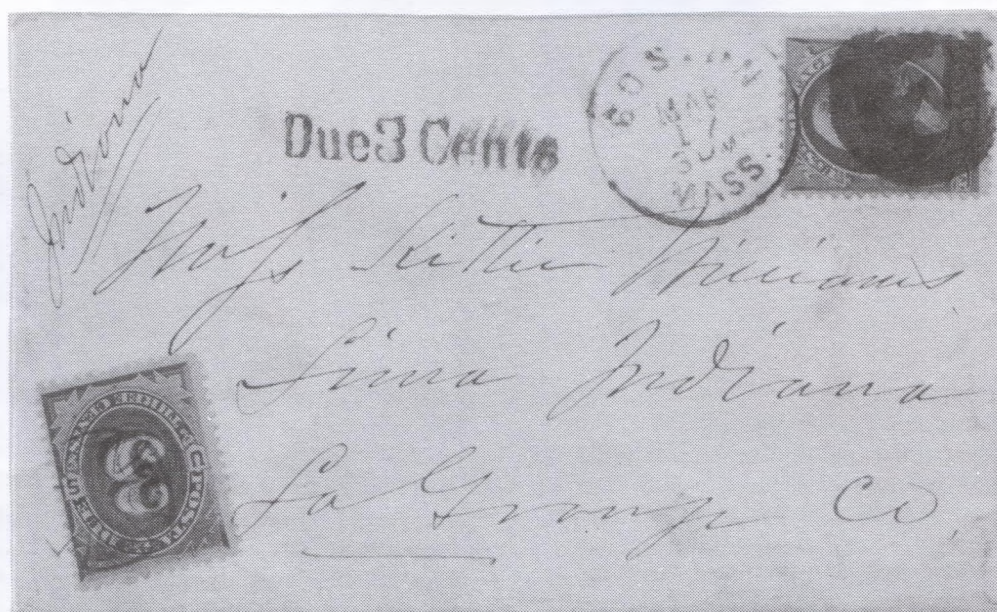 Indiana
Due 3 Cents
BOSTON
MAR
MASS.
Miss Kittie Williams
Lima Indiana
La Grange Co.
3